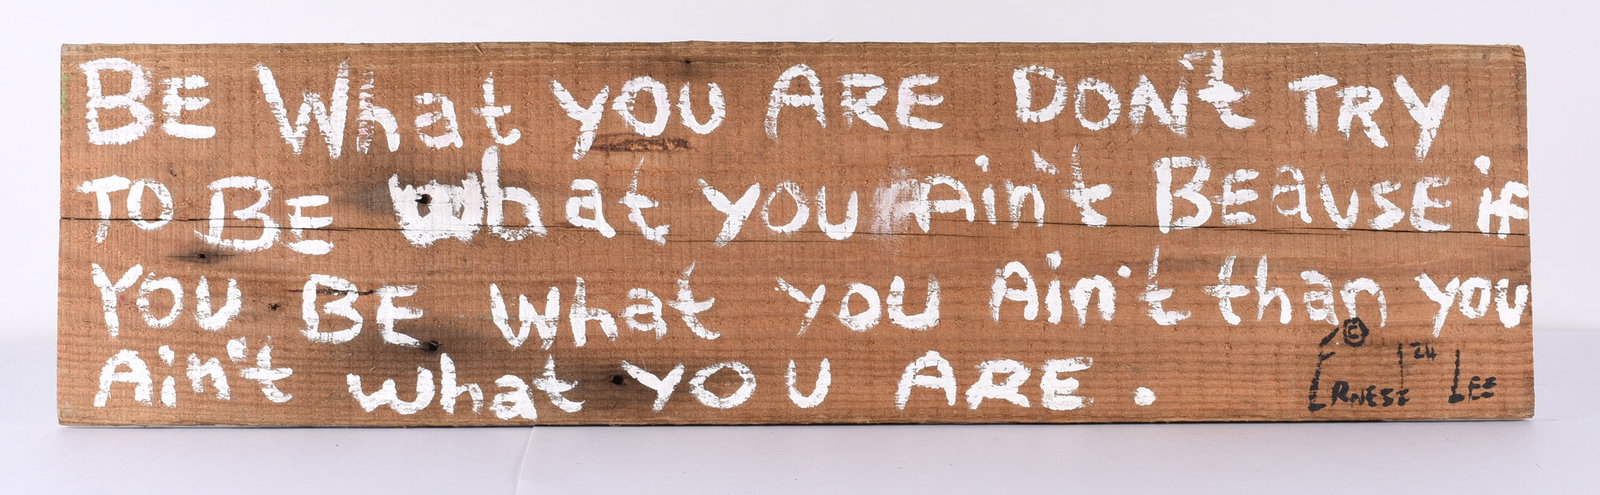 BE What YOU ARE DON't TRY
TO BE What YOU Ain't BEause if
YOU BE What YOU Ain't than you
Ain't what YOU ARE.
© ERNEST LEE